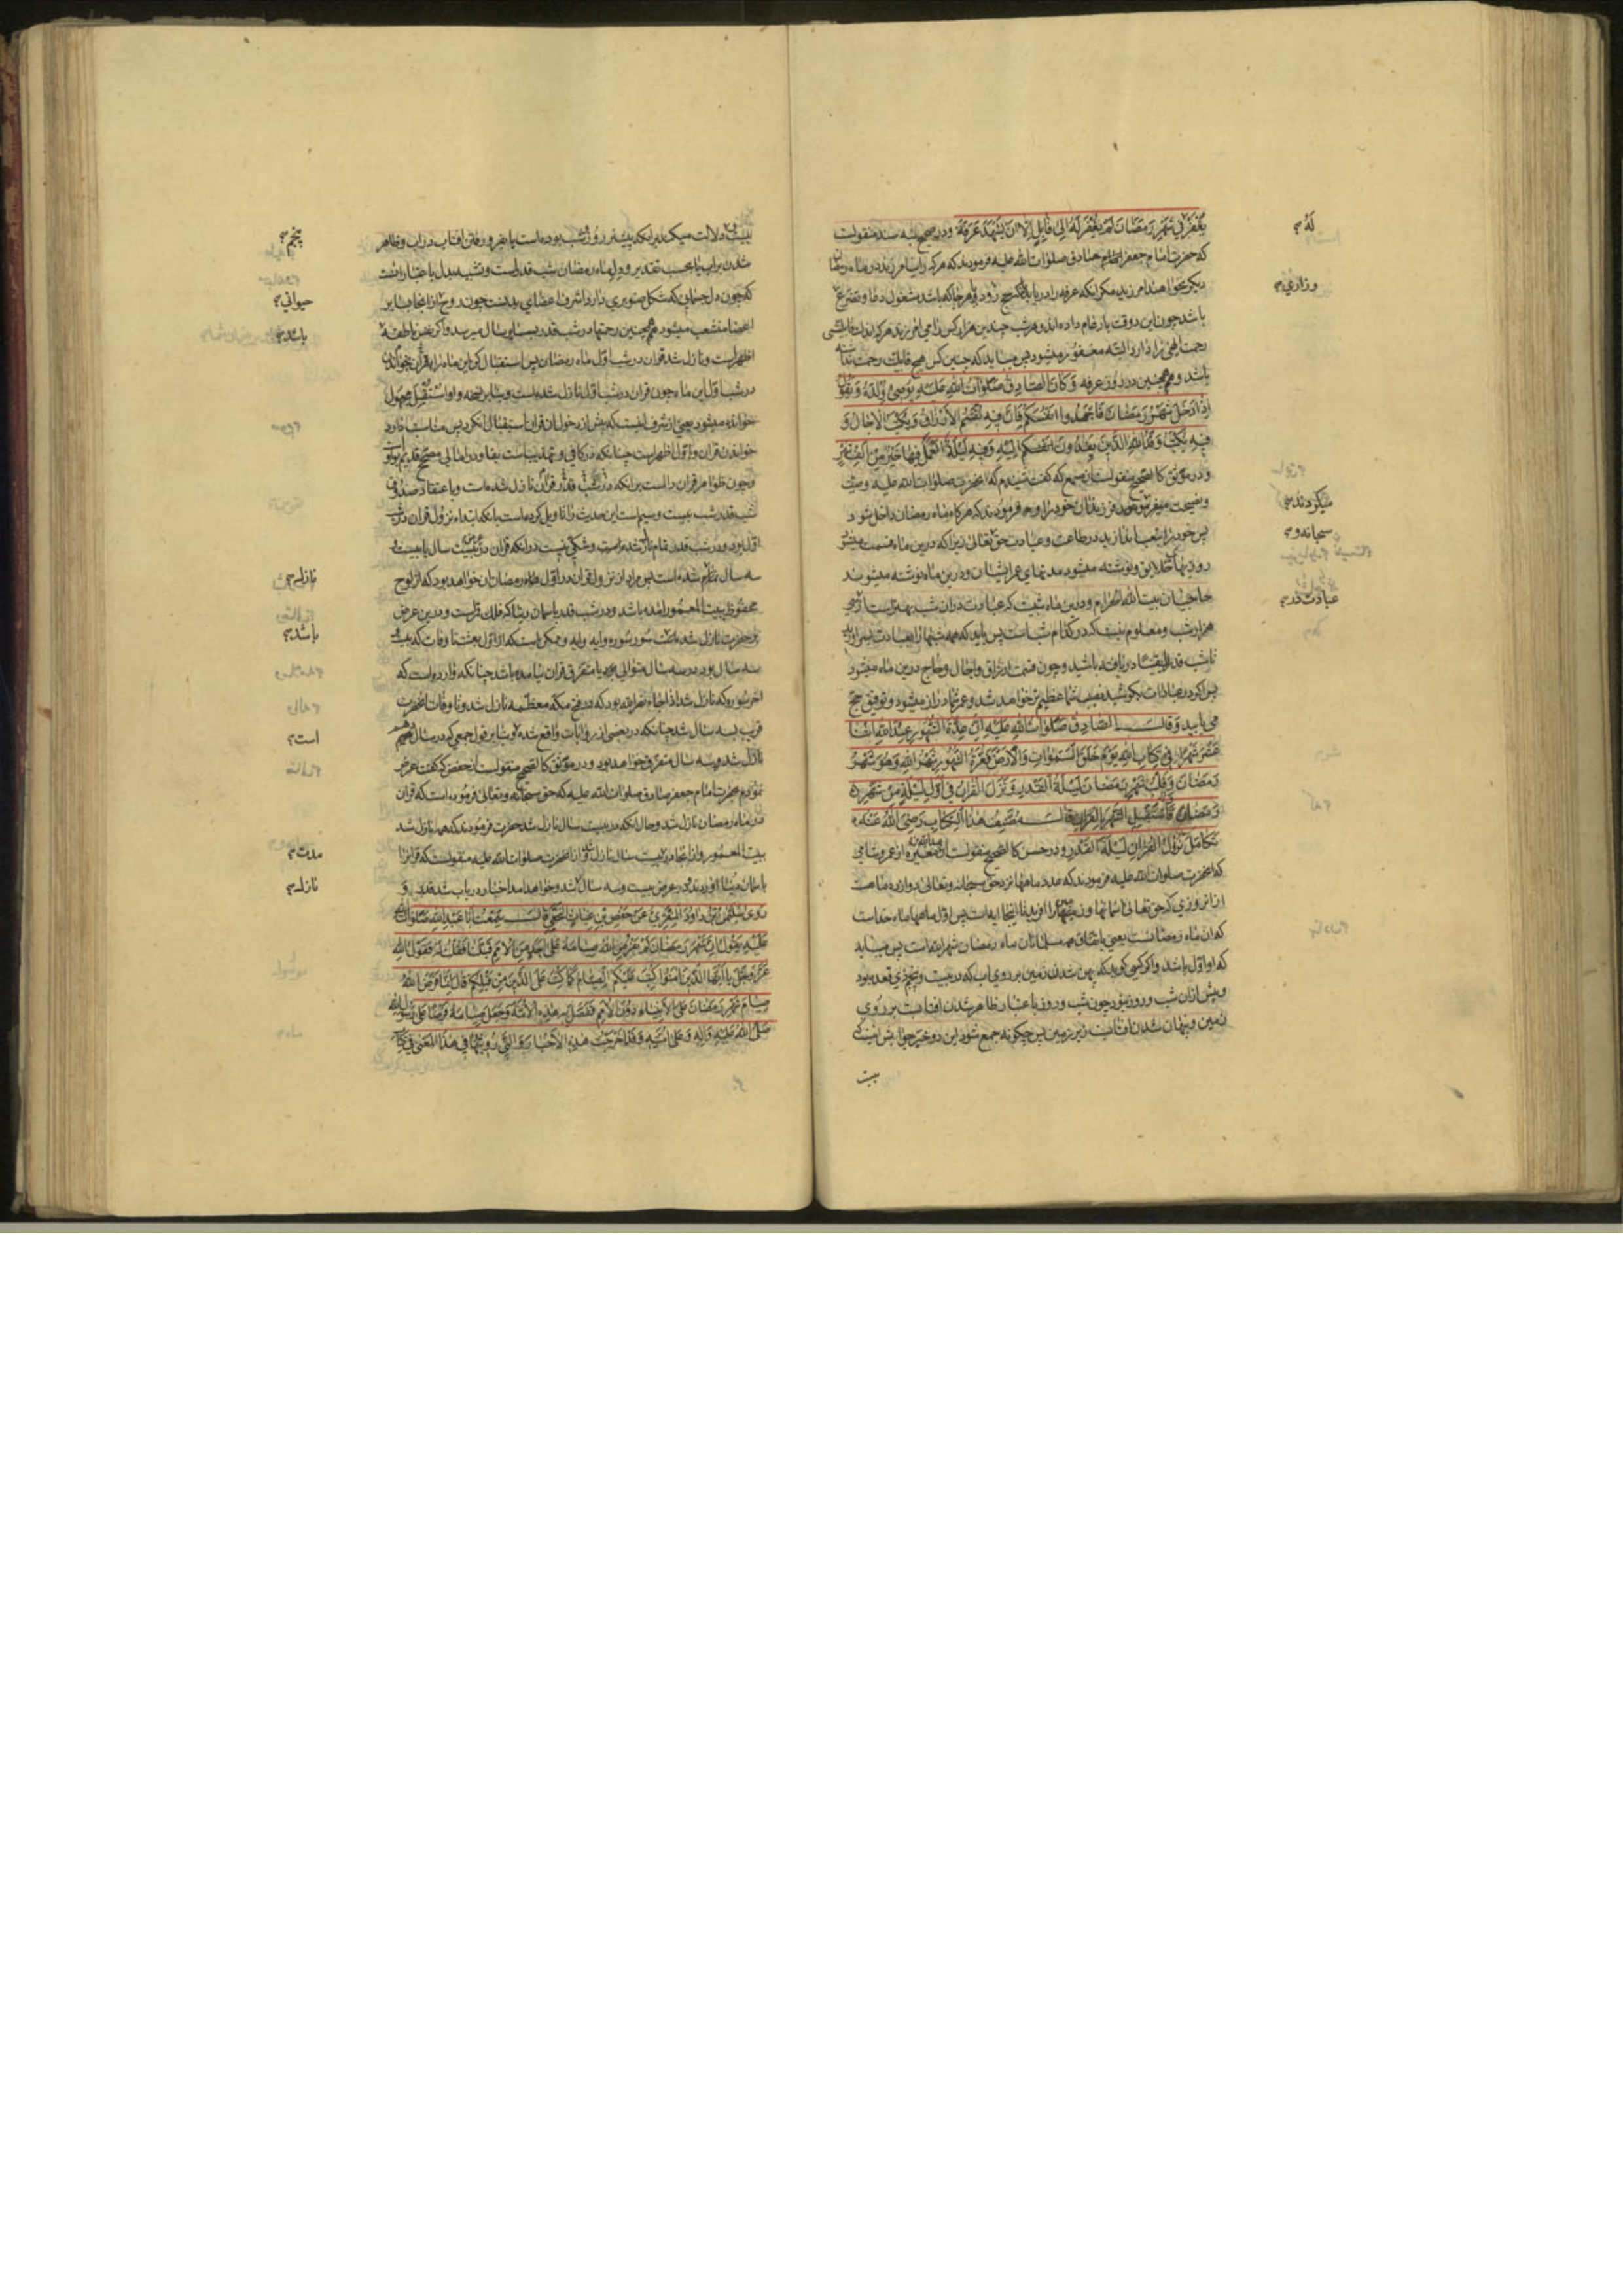 يُغْفَرْ فِي شَهْرِ رَمَضَانَ لَمْ يُغْفَرْ لَهُ اِلَى قَابِلٍ اِلَّا اَنْ يَشْهَدَ عَرَفَةَ ودر صحيح سند منقولست
كه حضرت امام جعفر صادق صلوات الله عليه فرمودند كه هر كه را نيامرزند در ماه رمضان
ديكر نخواهند امرزيد مكر انكه عرفه را دريابد هرجا كه باشد مشغول دعا وتضرع
باشد چون اين دو وقت بار عام داده اند وهر شب چندين هزار كس را مي امرزند هر كه اندك قابليتي
رحمت الهي را دارد البته مغفور ميشود پس ميبايد كه چنين كس هيچ قابليت رحمت نداشته
باشد وهمچنين در روز عرفه وَكَانَ الصَّادِقُ صَلَوَاتُ اللهِ عَلَيْهِ يُوصِي وُلْدَهُ وَيَقُولُ
اِذَا دَخَلَ شَهْرُ رَمَضَانَ فَاجْهَدُوا اَنْفُسَكُمْ فَاِنَّ فِيهِ تُقَسَّمُ الْاَرْزَاقُ وَتُكْتَبُ الْاٰجَالُ وَ
فِيهِ يُكْتَبُ وَفْدُ اللهِ الَّذِينَ يَفِدُونَ اِلَيْهِ وَفِيهِ لَيْلَةٌ الْعَمَلُ فِيهَا خَيْرٌ مِنْ اَلْفِ شَهْرٍ
ودر موثق كالصحيح منقولست از مسمع كه كفت شنيدم كه انحضرت صلوات الله عليه وصيت
ونصيحت ميفرمودند فرزندان خود را وميفرمودند كه هر كاه ماه رمضان داخل شود
پس خود را بتعب اندازيد در طاعت وعبادت حق تعالى زيرا كه درين ماه قسمت ميشود
روزيهاي خلايق ونوشته ميشود مدتهاي عمر ايشان ودرين ماه نوشته ميشوند
حاجيان بيت الله الحرام ودرين ماه شبيست كه عبادت دران شب بهتر است از
هزار شب ومعلوم نيست كه در كدام شب است پس بايد كه همه شبها را بعبادت بسر اريد
تا شب قدر را يقينا دريافته باشيد وچون قسمت ارزاق واجال وحاج درين ماه ميشود
پس اكر در عبادات بكوشيد نصيب شما عظيمتر خواهد شد وعمرتان دراز ميشود وتوفيق حج
مي يابيد وَقَالَ الصَّادِقُ صَلَوَاتُ اللهِ عَلَيْهِ اِنَّ عِدَّةَ الشُّهُورِ عِنْدَ اللهِ اثْنَا
عَشَرَ شَهْرًا فِي كِتَابِ اللهِ يَوْمَ خَلَقَ السَّمٰوَاتِ وَالْاَرْضَ فَغُرَّةُ الشُّهُورِ شَهْرُ اللهِ وَهُوَ شَهْرُ
رَمَضَانَ وَقَلْبُ شَهْرِ رَمَضَانَ لَيْلَةُ الْقَدْرِ وَنَزَلَ الْقُرْاٰنُ فِي اَوَّلِ لَيْلَةٍ مِنْ شَهْرِ
رَمَضَانَ فَاسْتَقْبِلِ الشَّهْرَ بِالْقُرْاٰنِ قَالَ مُصَنِّفُ هٰذَا الْكِتَابِ رَضِيَ اللهُ عَنْهُ
تَكَامَلَ نُزُولُ الْقُرْاٰنِ لَيْلَةَ الْقَدْرِ ودر حسن كالصحيح منقولست از عمرو شامي
كه انحضرت صلوات الله عليه فرمودند كه عدد ماهها نزد حق سبحانه وتعالى دوازده ماهست
از انروزي كه حق تعالى اسمانها وزمينها را افريد پس اول ماهها ماه خداست
كه ان ماه رمضانست يعني باتفاق همه مسلمانان ماه رمضان شهر الله است پس ميبايد
كه او اول باشد واكر كسي كويد كه پهن شدن زمين بر روي اب كه در بيست وپنجم ذي قعده بود
وپيش ازان شب وروز نبود چون شب وروز باعتبار ظاهر شدن افتابست بر روي
زمين وپنهان شدن افتابست زير زمين پس چكونه جمع شود اين دو خبر جواب
بيست
لَهُ
وزاري
ميكردند
سبحانه و
عبادت در
دلالت ميكند برانكه پيشتر روز وشب بوده است يا بفرو رفتن افتاب در اب وظاهر
شدن بر اب يا بحسب تقدير ودل ماه رمضان شب قدر است وتشبيه بدل باعتبار انست
كه چون دل جسماني كه شكل صنوبري دارد اشرف اعضاي بدنست چون روح از انجا بساير
اعضا منشعب ميشود همچنين رحمتها در شب قدر بساير سال ميرسد واكر نفس ناطقه
اظهر است ونازل شد قران در شب اول ماه رمضان پس استقبال كن اين ماه را بقران خواندن
در شب اول اين ماه چون قران در شب اول نازل شده است
خوانده ميشود يعني از شرف اينست كه پيش از دخول
خواندن قران واول اظهر است چنانكه در كافي وتهذيبست
وچون ظواهر قران دالست برانكه در شب قدر قران نازل شده است وباعتقاد صدوق
شب قدر شب بيست وسيم است اين حديث را تاويل كرده است بانكه ابتداء نزول قران در شب
اول بود ودر شب قدر تمام نازل شده است وشكي نيست درانكه قران در بيست سال يا بيست و
سه سال تمام شده است پس مراد از نزول قران در اول ماه رمضان ان خواهد بود كه از لوح
محفوظ ببيت المعمور امده باشد ودر شب قدر باسمان دنيا كه فلك قمر است ودرين عرض
بر حضرت نازل شده است سوره سوره وايه وايه وممكن است كه از اول بعثت تا وفات كه بيست و
سه سال بود در سه سال متوالي يا متفرق قران نيامده باشد چنانكه وارد است كه
اخر سوره كه نازل شد اذا جاء نصر الله بود كه در فتح مكه معظمه نازل شد وتا وفات انحضرت
قريب بسه سال شد چنانكه در بعضي از روايات واقع شده
نازل شد وسه سال متفرق خواهد بود ودر موثق كالصحيح منقولست از حفص كه كفت عرض
نمودم بحضرت امام جعفر صادق صلوات الله عليه كه حق سبحانه وتعالى فرموده است كه قران
در ماه رمضان نازل شد وحال انكه در بيست سال نازل شد حضرت فرمودند كه همه نازل شد
ببيت المعمور وازانجا در بيست سال نازل شد وازانحضرت صلوات الله عليه منقولست كه قران را
باسمان دنيا اوردند ودر عرض بيست وسه سال نازل شد وخواهد امد اخبار در باب شب قدر و
رَوَى سُلَيْمٰنُ بْنُ دَاوُدَ الْمِنْقَرِيُّ عَنْ حَفْصِ بْنِ غِيَاثٍ النَّخَعِيِّ قَالَ سَمِعْتُ اَبَا عَبْدِ اللهِ صَلَوَاتُ اللهِ
عَلَيْهِ يَقُولُ اِنَّ شَهْرَ رَمَضَانَ لَمْ يَفْرِضِ اللهُ صِيَامَهُ عَلَى اَحَدٍ مِنَ الْاُمَمِ قَبْلَنَا فَقُلْتُ لَهُ فَقَوْلُ اللهِ
عَزَّ وَجَلَّ يَا اَيُّهَا الَّذِينَ اٰمَنُوا كُتِبَ عَلَيْكُمُ الصِّيَامُ كَمَا كُتِبَ عَلَى الَّذِينَ مِنْ قَبْلِكُمْ قَالَ اِنَّمَا فَرَضَ اللهُ
صِيَامَ شَهْرِ رَمَضَانَ عَلَى الْاَنْبِيَاءِ دُونَ الْاُمَمِ فَفَضَّلَ بِهِ هٰذِهِ الْاُمَّةَ وَجَعَلَ صِيَامَهُ فَرْضًا عَلَى رَسُولِ اللهِ
صَلَّى اللهُ عَلَيْهِ وَاٰلِهِ وَعَلَى اُمَّتِهِ وَقَدْ اَخْرَجْتُ هٰذِهِ الْاَخْبَارَ الَّتِي رُوِيَتْ فِي هٰذَا الْمَعْنَى فِي كِتَابِ
پنجم
حيواني
باشد
نازل
باشد
است
مدت
نازل